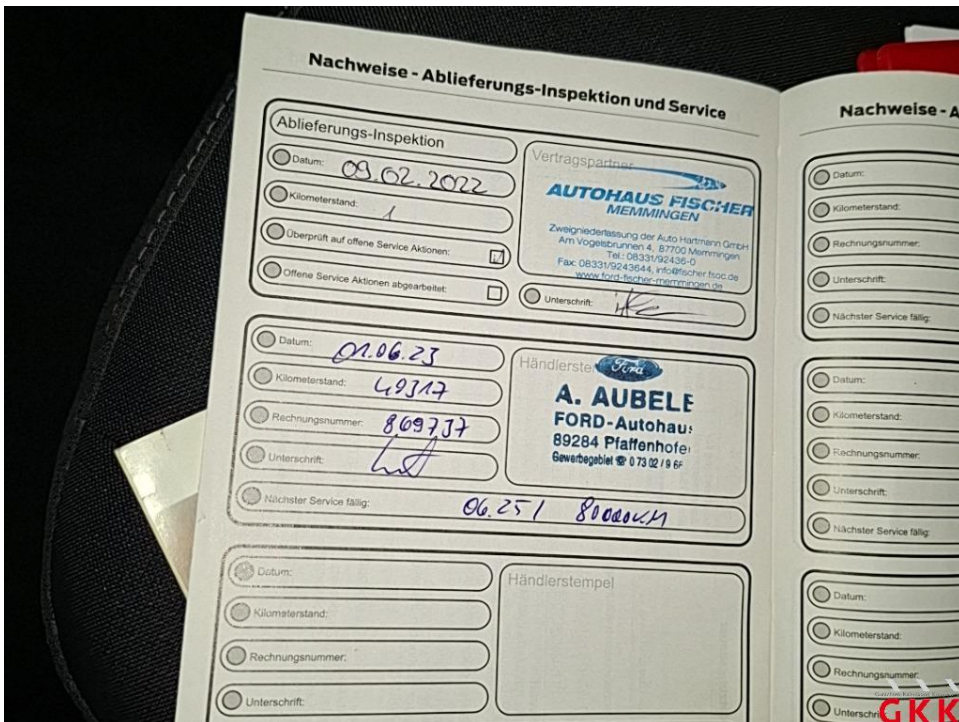 Nachweise - Ablieferungs-Inspektion und Service
Ablieferungs-Inspektion
Datum: 09.02.2022
Kilometerstand: 1
Überprüft auf offene Service Aktionen:
Offene Service Aktionen abgearbeitet:
Vertragspartner
AUTOHAUS FISCHER
MEMMINGEN
Zweigniederlassung der Auto Hartmann GmbH
Am Vogelsbrunnen 4, 87700 Memmingen
Tel.: 08331/92436-0
Fax: 08331/9243644, info@fischer.fsoc.de
www.ford-fischer-memmingen.de
Unterschrift:
Datum: 01.06.23
Kilometerstand: 49317
Rechnungsnummer: 869737
Unterschrift:
Nächster Service fällig: 06.25 / 80000KM
Ford
A. AUBELE
FORD-Autohaus
89284 Pfaffenhofe
Gewerbegebiet ☎ 0 73 02 / 9 6
Datum:
Kilometerstand:
Rechnungsnummer:
Unterschrift:
Händlerstempel
Nachweise - A
Datum:
Kilometerstand:
Rechnungsnummer:
Unterschrift:
Nächster Service fällig:
Datum:
Kilometerstand:
Rechnungsnummer:
Unterschrift:
Nächster Service fällig:
Datum:
Kilometerstand:
Rechnungsnummer:
GKK